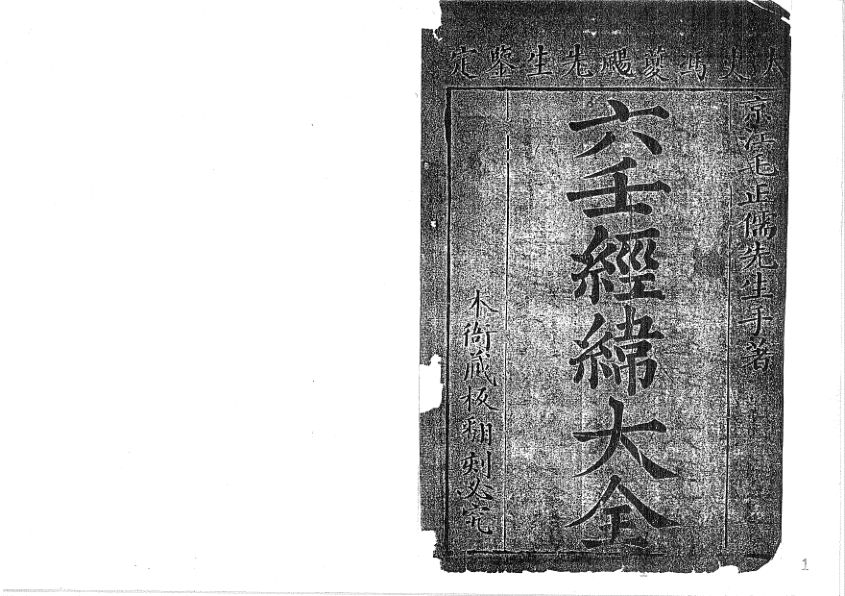 太史馮夔颺先生鑒定
京江毛正儒先生手著
六壬經緯大全
本衙藏板翻刻必究
1